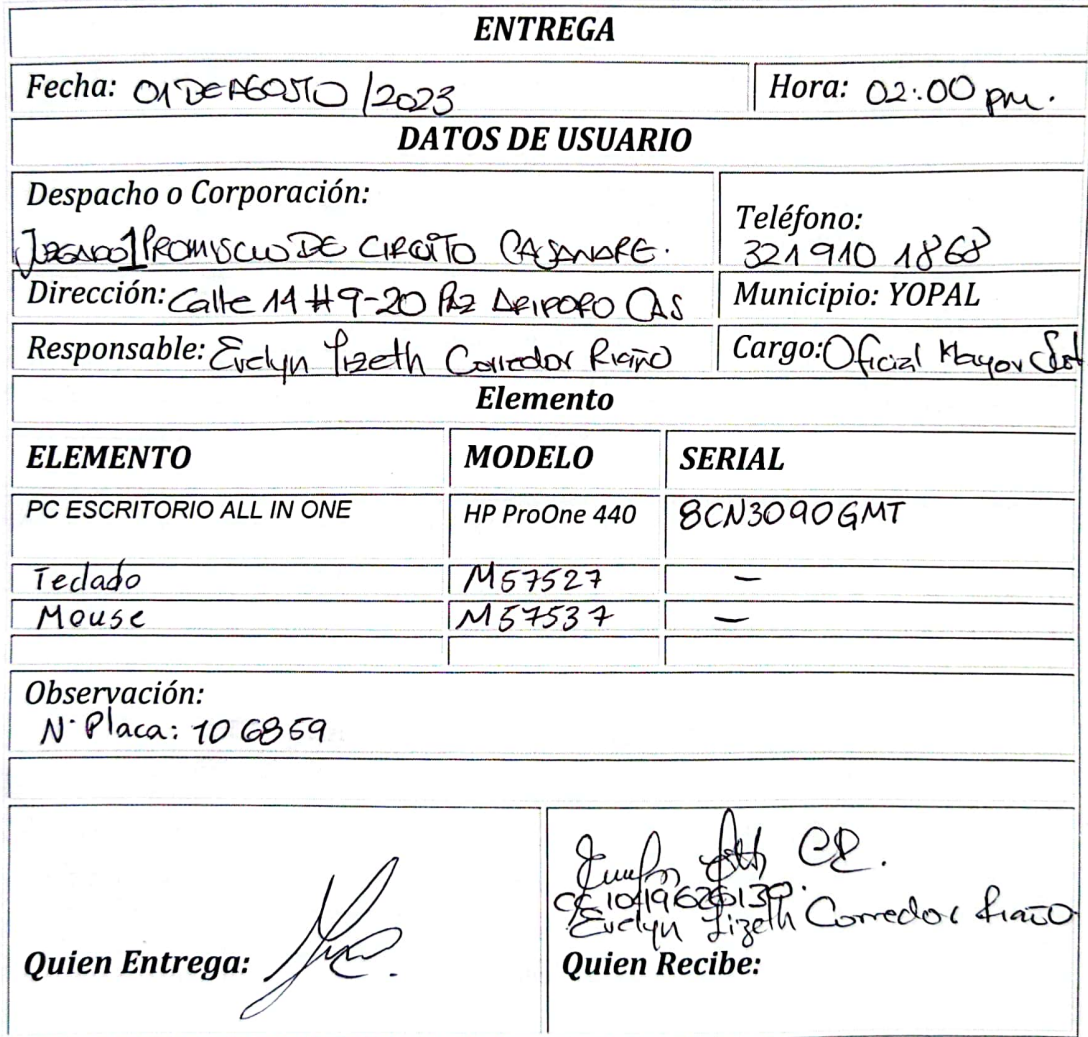 ENTREGA
Fecha: 01 DE AGOSTO /2023 Hora: 02:00 pm.
DATOS DE USUARIO
Despacho o Corporación:
Juzgado 1 PROMISCUO DE CIRCUITO CASANARE.
Teléfono:
321 910 1868
Dirección: Calle 14 # 9-20 PAZ ARIPORO CAS Municipio: YOPAL
Responsable: Evelyn Lizeth Corredor Riaño Cargo: Oficial Mayor
Elemento
ELEMENTO MODELO SERIAL
PC ESCRITORIO ALL IN ONE HP ProOne 440 8CN3090GMT
Teclado M57527 —
Mouse M57537 —
Observación:
N· Placa: 106859
CR.
Evelyn Lizeth Corredor Riaño
Quien Entrega: Quien Recibe: